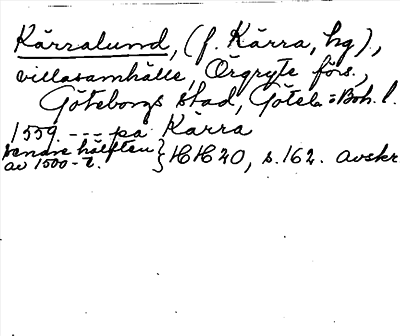 Kärralund, (f. Kärra, hg),
villasamhälle, Örgryte förs.,
Göteborgs stad, Göteb. o. Boh. l.
1559. --- på Kärra
senare hälften
av 1500-t. } HH 20, s. 162. avskr